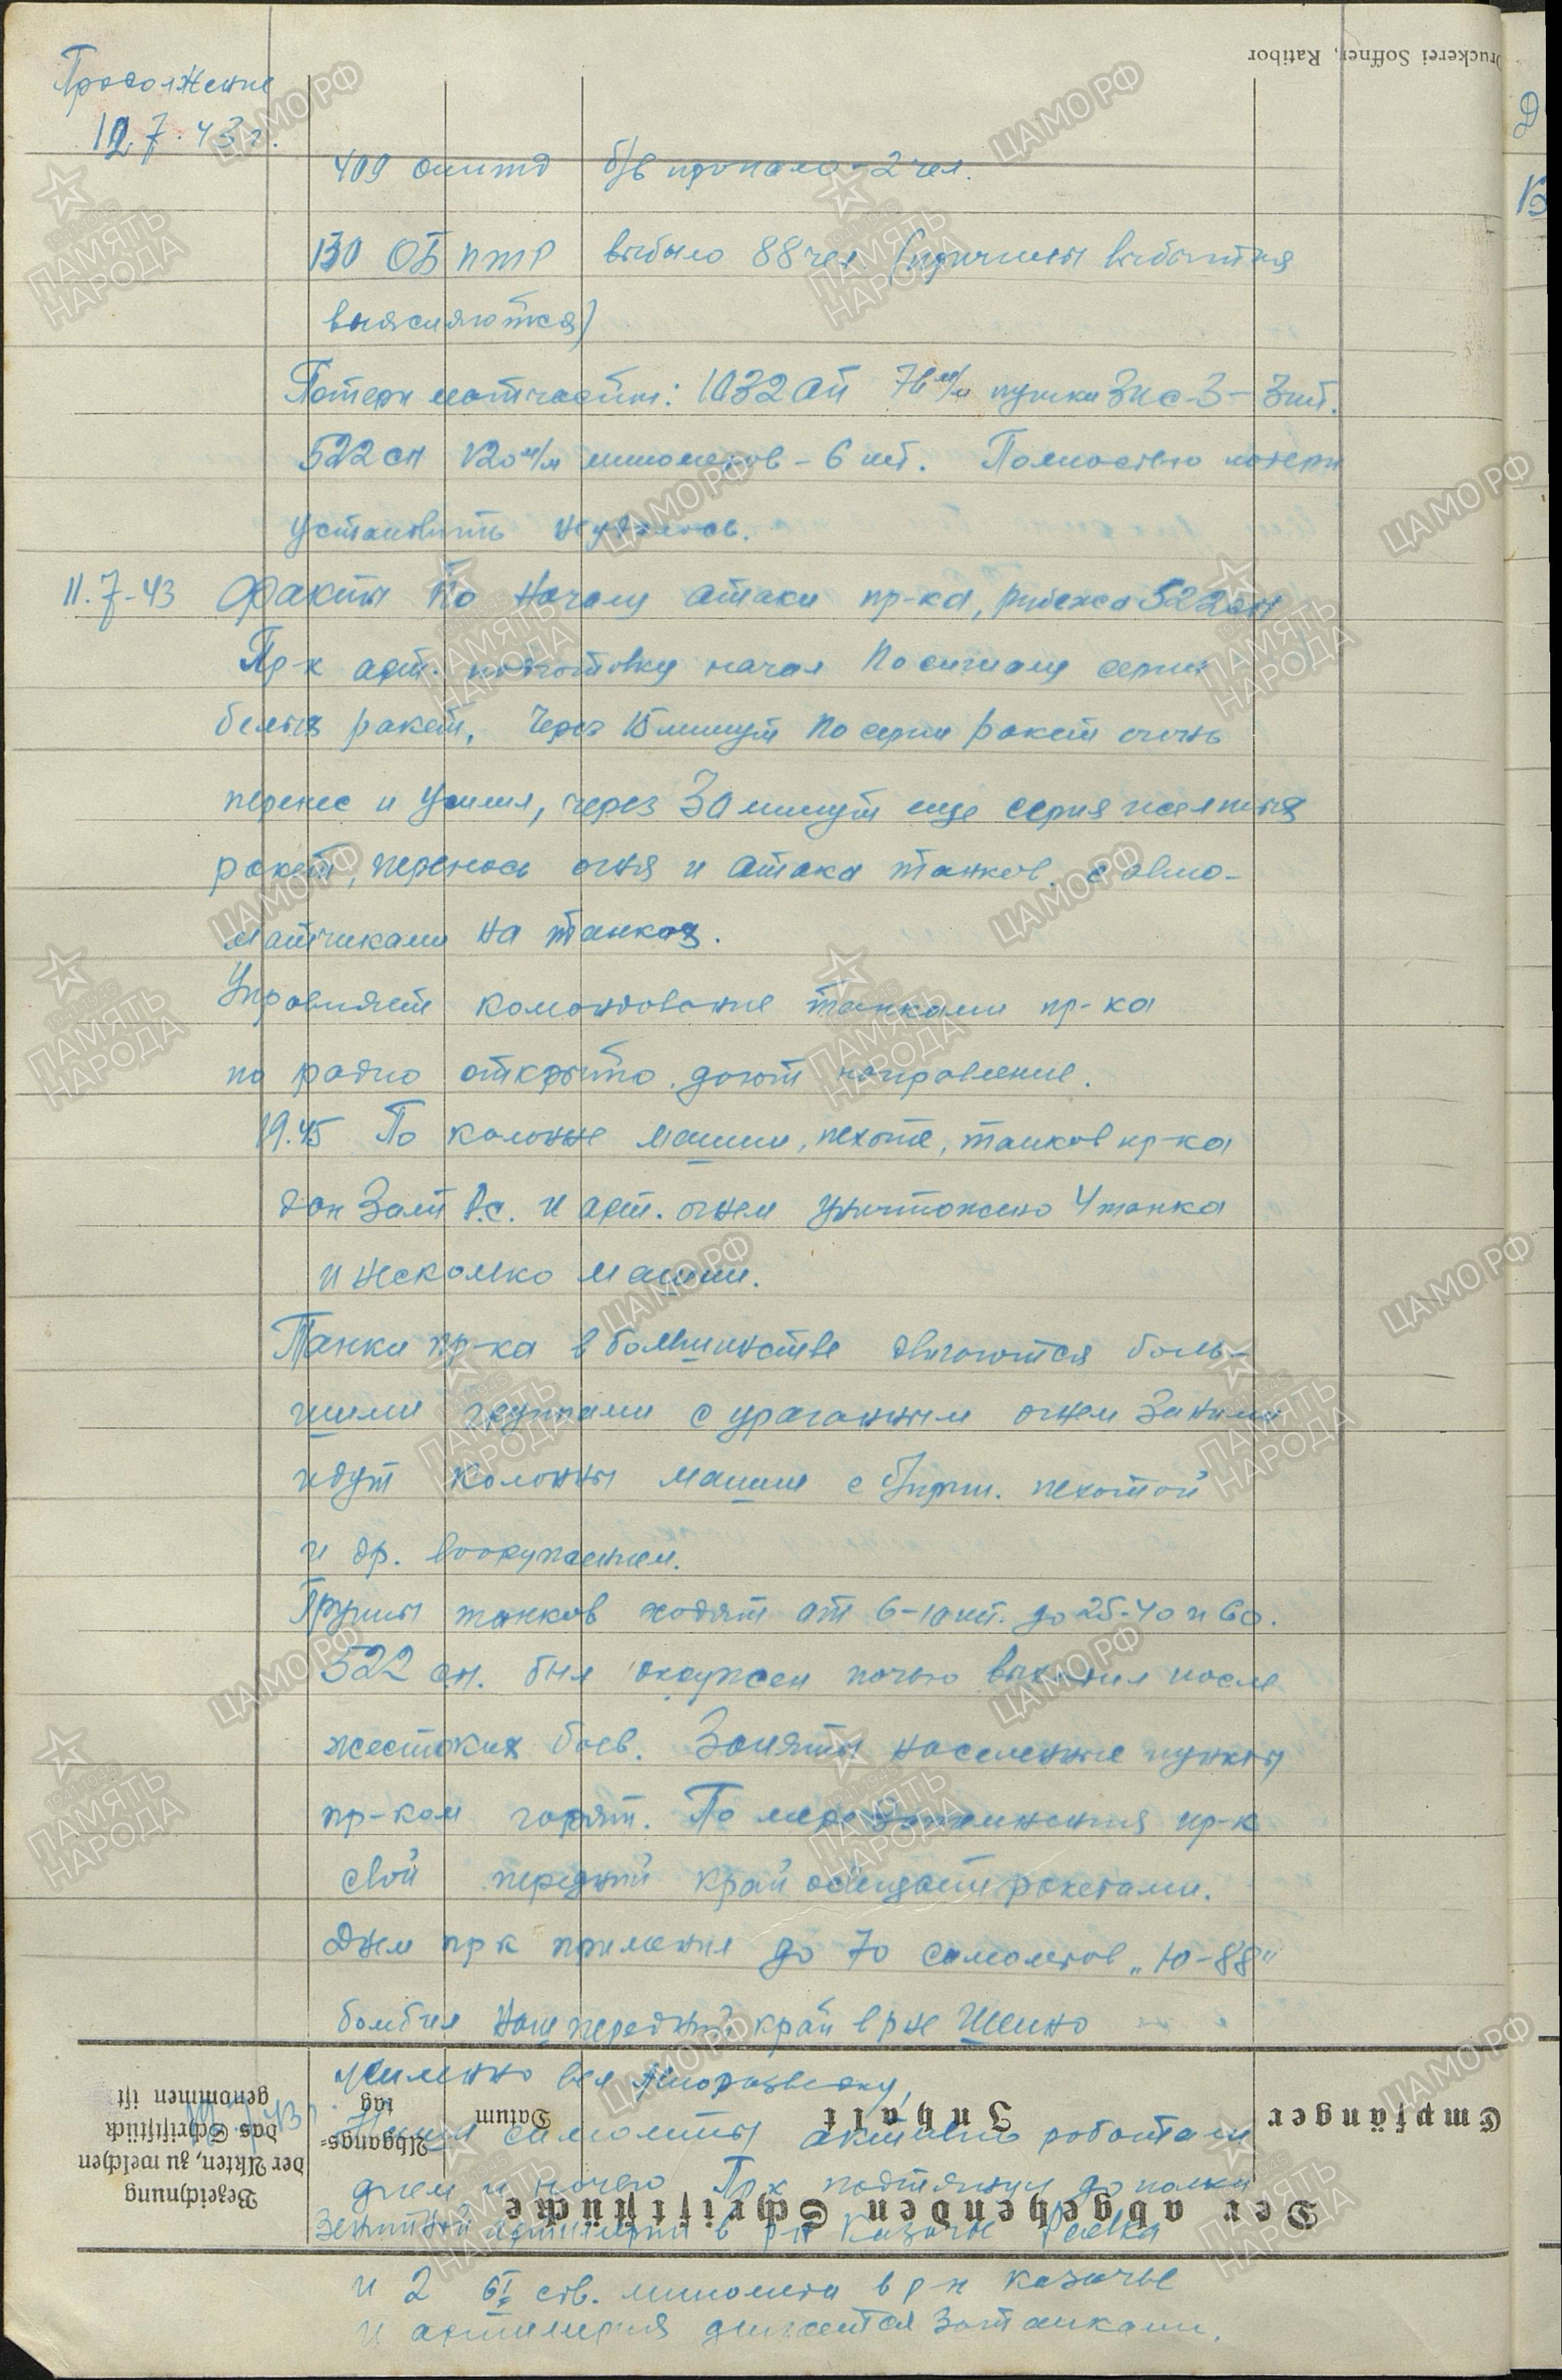 Продолжение
12.7.43 г.
409 оиптд б/в пропало - 2 чел.
130 ОБ ПТР выбыло 88 чел (причины выбытия
выясняются)
Потери матчасти: 1032 ап 76 м/м пушки Зис-3 - 3 шт.
522 сп 120 м/м минометов - 6 шт. Полностью потери
установить неудалось.
11.7-43 Факты По Началу атаки пр-ка, рубежа 522 сп
Пр-к арт. подготовку начал По сигналу серии
белых ракет, Через 15 минут По серии ракет огонь
перенес и усилил, через 30 минут еще серия желтых
ракет, перенось огня и атака танков с авто-
матчиками на танках.
Управляет командование танками пр-ка
по радио открыто, дают направление.
19.45 По колонне машин, пехоте, танков пр-ка
дан Залп Р.С. и арт. огнем уничтожено 4 танка
и несколко машин.
Танки пр-ка в большинстве двигаются боль-
шими группами с ураганным огнем За ними
идут колонны машин с пехотой
и др. вооружением.
Групы танков ходят от 6-10 шт. до 25-40 и 60.
522 сп. был окружен ночью выходил после
жестоких боев. Заняты населенные пункты
пр-ком горят. По мере продвижения пр-к
свой передний край освещает ракетами.
Днем пр к применил до 70 самолетов „Ю-88"
бомбил наш передний край в р не Шеино
усиленно вел авиоразведку,
Наши самолеты активно работали
днем и ночью Пр к подтянул до полка
Зенитной артилерии в р-н Казачье
и 2 6ти ств. миномета в р-н Казачье
и артилерия движется За танками.
Druckerei Soffner, Ratibor
Der abgehenden Schriftstücke
Bezeichnung
der Akten, zu welchen
das Schriftstück
genommen ist
Abgangs-
tag
Datum
Inhalt
Empfänger
ЦАМО РФ
ПАМЯТЬ
НАРОДА